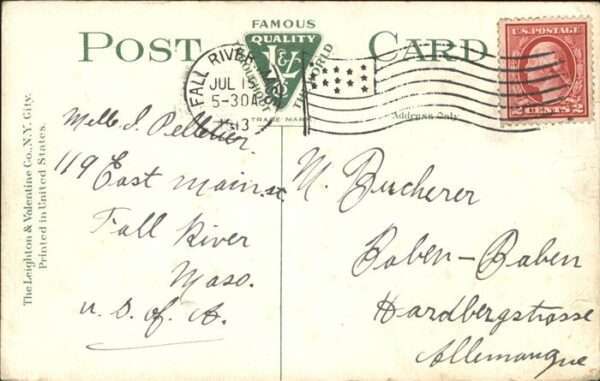 POST CARD
FAMOUS
QUALITY
L&V
Co
THROUGHOUT THE WORLD
TRADE MARK
FALL RIVER
JUL 15
5-30A
1913
U.S. POSTAGE
2 CENTS 2
Address Only
The Leighton & Valentine Co., N.Y. City.
Printed in United States.
Melle I. Pelletier
119 East main st
Fall River
Mass.
U. S. of A.
M. Bucherer
Baben-Baben
Hardbergstrasse
Allemangne